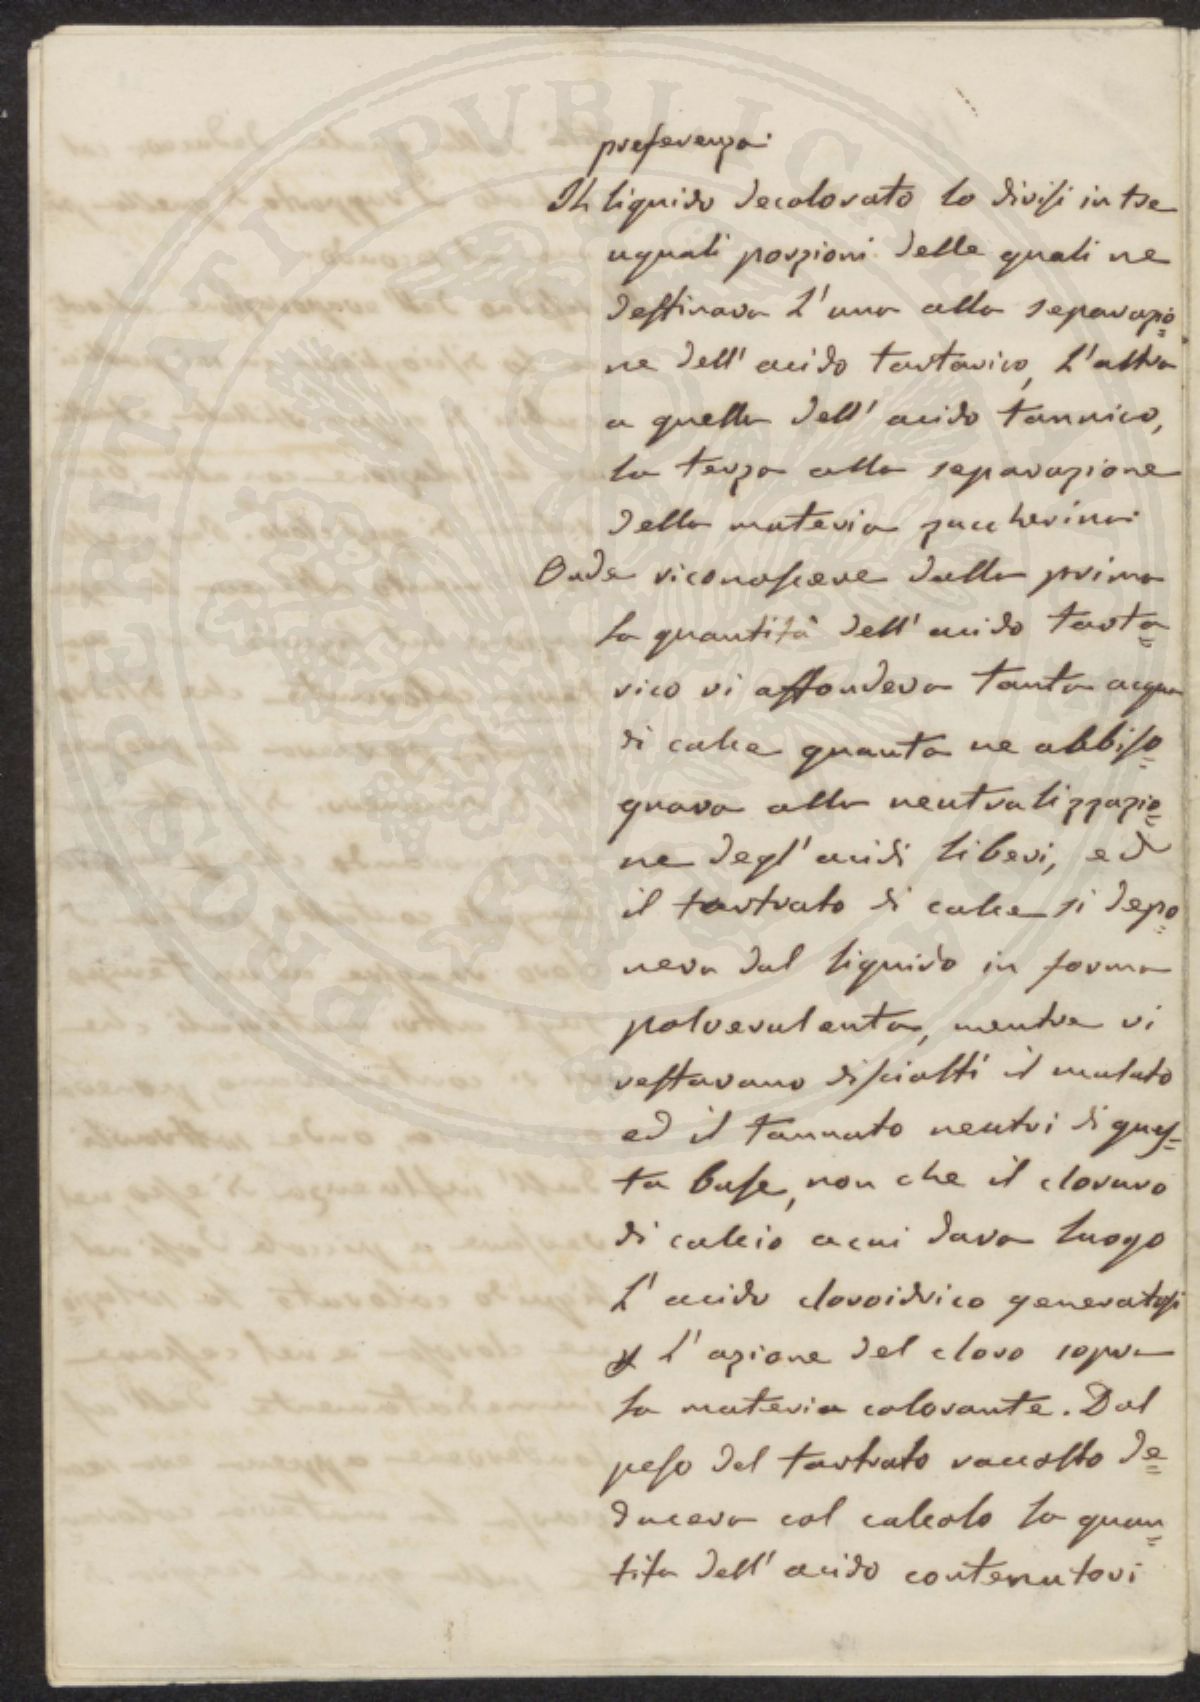 preferenza.
Il liquido decolorato lo divisi in tre
uguali porzioni delle quali ne
destinava l'una alla separazio=
ne dell'acido tartarico, l'altra
a quella dell'acido tannico,
la terza alla separazione
della materia zuccherina.
Onde riconoscere dalla prima
la quantità dell'acido tarta=
rico vi affondeva tanta acqua
di calce quanta ne abbiso=
gnava alla neutralizzazio=
ne degl'acidi liberi, ed
il tartrato di calce si depo=
neva dal liquido in forma
polverulenta, mentre vi
restavano disciolti il malato
ed il tannato neutri di ques=
ta base, non che il cloruro
di calcio a cui dava luogo
l'acido cloroidrico generatosi
l'azione del cloro sopra
la materia colorante. Dal
peso del tartrato raccolto de=
duceva col calcolo la quan=
tita dell'acido contenutovi
PROSPERITATI PUBLICAE